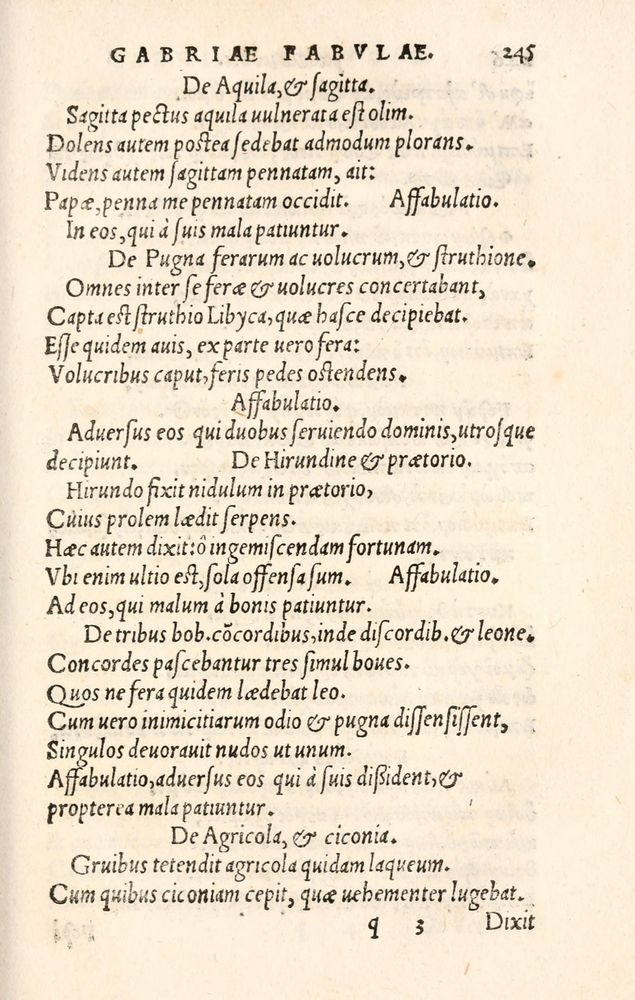 GABRIAE FABVLAE. 245
De Aquila, & sagitta.
Sagitta pectus aquila uulnerata est olim.
Dolens autem postea sedebat admodum plorans.
Videns autem sagittam pennatam, ait:
Papæ, penna me pennatam occidit. Affabulatio.
In eos, qui à suis mala patiuntur.
De Pugna ferarum ac uolucrum, & struthione.
Omnes inter se feræ & uolucres concertabant,
Capta est struthio Libyca, quæ hasce decipiebat.
Esse quidem auis, ex parte uero fera:
Volucribus caput, feris pedes ostendens.
Affabulatio.
Aduersus eos qui duobus seruiendo dominis, utrosque
decipiunt. De Hirundine & prætorio.
Hirundo fixit nidulum in prætorio,
Cuius prolem lædit serpens.
Hæc autem dixit: ô ingemiscendam fortunam.
Vbi enim ultio est, sola offensa sum. Affabulatio.
Ad eos, qui malum à bonis patiuntur.
De tribus bob. cōcordibus, inde discordib. & leone.
Concordes pascebantur tres simul boues.
Quos ne fera quidem lædebat leo.
Cum uero inimicitiarum odio & pugna dissensissent,
Singulos deuorauit nudos ut unum.
Affabulatio, aduersus eos qui à suis dißident, &
propterea mala patiuntur.
De Agricola, & ciconia.
Gruibus tetendit agricola quidam laqueum.
Cum quibus ciconiam cepit, quæ uehementer lugebat.
q 3 Dixit